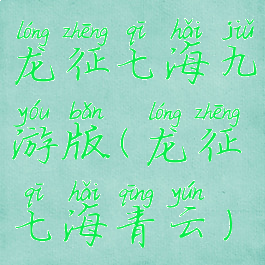 lóng zhēng qī hǎi jiǔ
龙征七海九
yóu bǎn lóng zhēng
游版(龙征
qī hǎi qīng yún
七海青云)